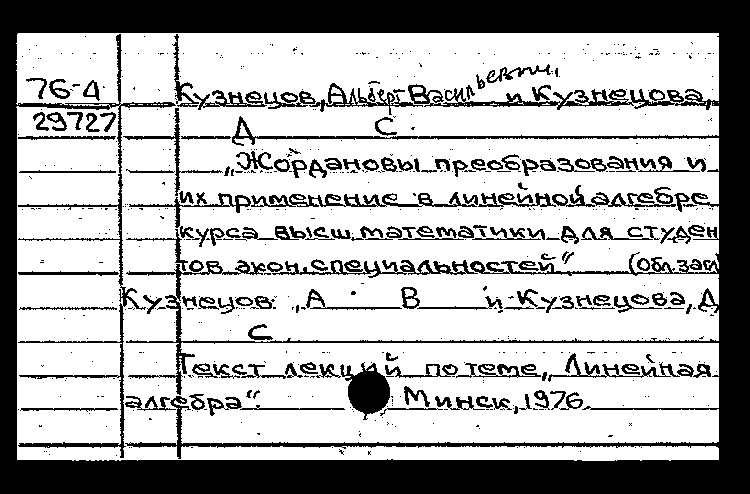 76-4 Кузнецов, Альберт Васильевич, и Кузнецова,
29727 Д С.
„Жордановы преобразования и
их применение в линейной алгебре
курса высш. математики для студен
тов экон. специальностей" (Обл. заг)
Кузнецов, А. В и Кузнецова, Д
С
Текст лекций по теме „Линейная
алгебра". Минск, 1976.